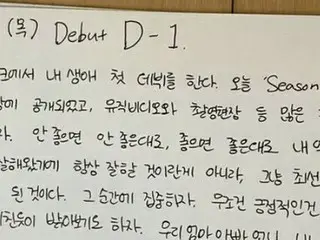 (목) Debut D-1.
에서 내 생애 첫 데뷔를 한다. 오늘 'Season
공개되었고, 뮤직비디오와 촬영현장 등 많은
안 좋으면 안 좋은대로, 좋으면 좋은대로 내
잘해왔기에 항상 잘할 것이란게 아니라, 그냥 최선
된 것이다. 그 순간에 집중하자. 무조건 긍정적인건
받아보기도 하자. 우리 엄마 아빠